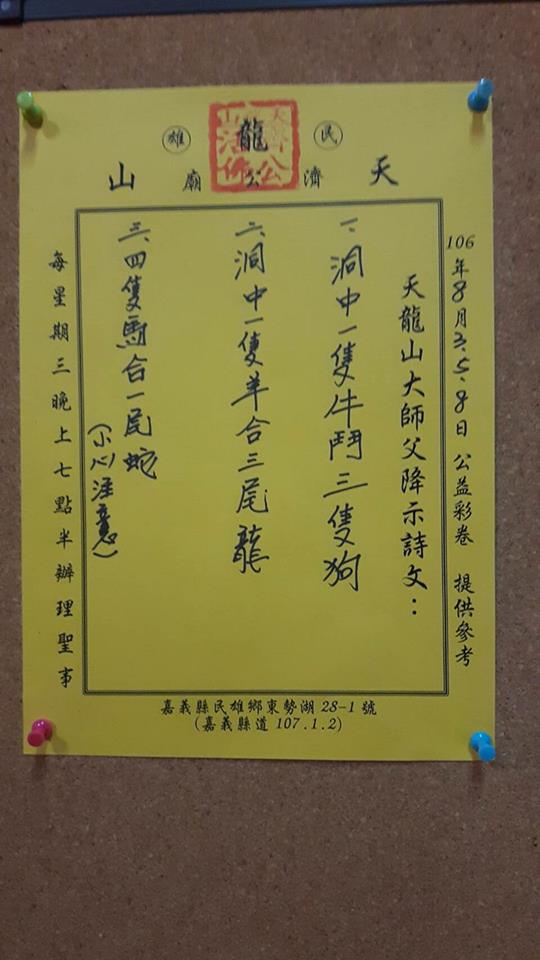 民雄
天龍山
濟公廟
106年8月3、5、8日 公益彩卷 提供參考
天龍山大師父降示詩文：
一、洞中一隻牛鬥三隻狗
二、洞中一隻羊合三尾龍
三、四隻馬合一尾蛇
(小心注意)
每星期三晚上七點半辦理聖事
嘉義縣民雄鄉東勢湖28-1號
(嘉義縣道107.1.2)